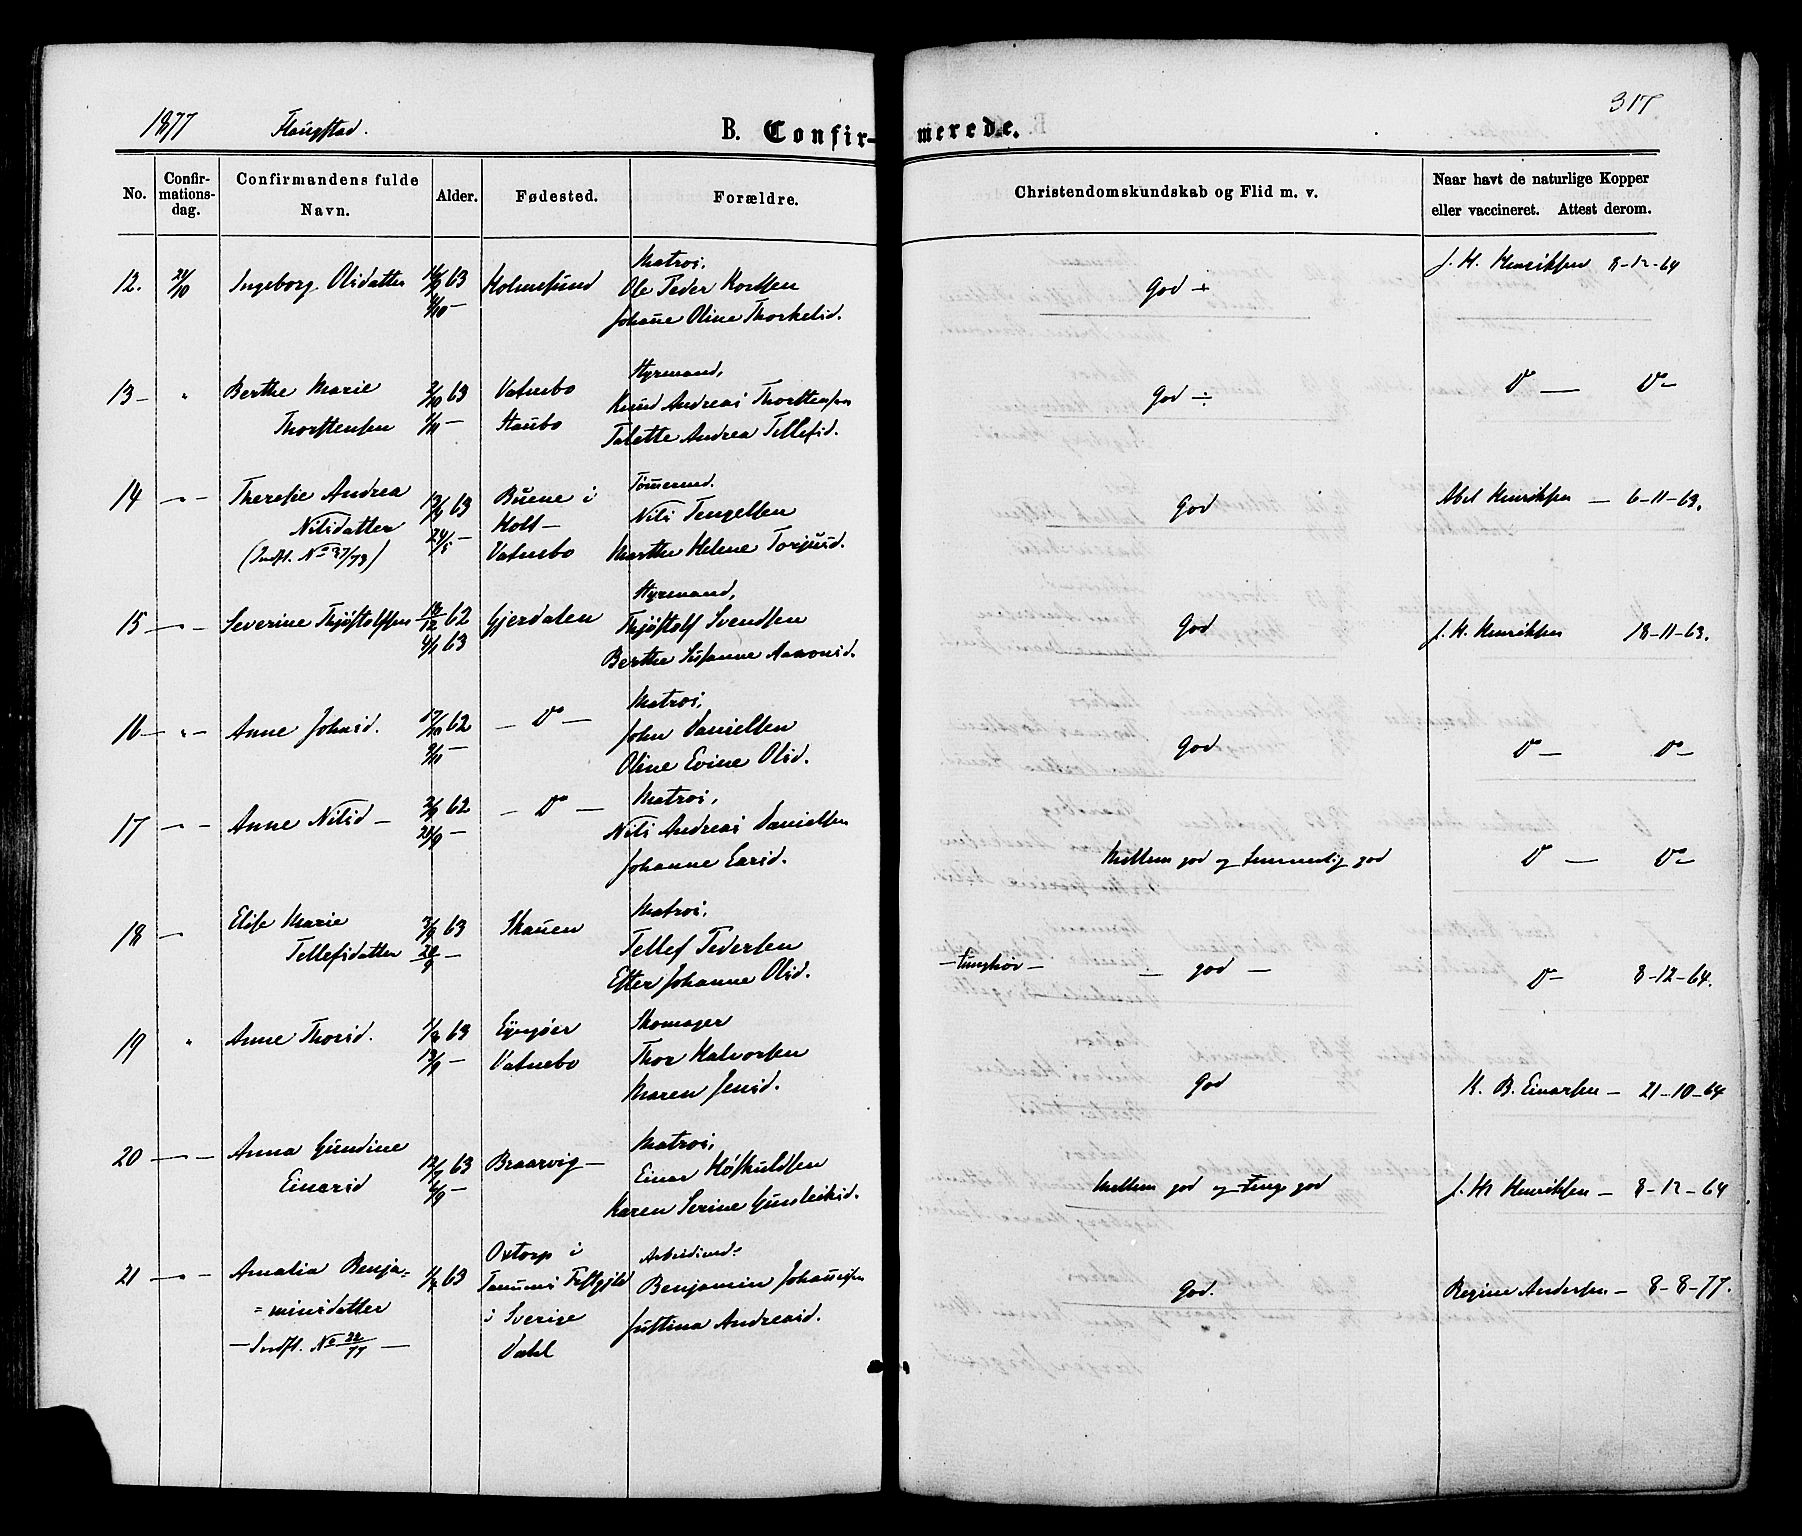 317
1877 Flangstad.
B. Confir- merede.
No. Confir-mations-dag. Confirmandens fulde Navn. Alder. Fødested. Forældre. Christendomskundskab og Flid m. v. Naar havt de naturlige Kopper eller vaccineret. Attest derom.
Matros,
12. 21/10 Ingeborg Olsdatter 63 Holmesund Ole Peder Korsken God ÷ J. H. Henriksen 8-12-64
4/10 — Johanne Oline Thorkelsd.
Styrmand,
13 — " Berthe Marie 2/10 63 Vatnebo Knud Andreas Thorstensen God ÷ Do — Do —
Thorstensen 1/11 — Staubo Talette Andrea Tellefsd.
Tømermd.
14 — " — Theresie Andrea 13/4 63 Buene i Nils Tengelsen God Abel Henriksen — 6-11-63.
Nilsdatter Holt —
(Indfl. No 37/73) 24/5 Vatnebo Marthe Helene Torjusd.
Styrmand,
15 — " — Severine Thjøstolfsen 18/12 62 Gjerdalen Thjøstolf Svendsen God J. H. Henriksen 18-11-63.
4/1 63 Berthe Susanne Aaronsd.
Matros,
16 — " — Anne Johnsd. 17/10 62 — Do — John Danielsen God Do — Do —
9/11 — Oline Evine Olsd.
Matros,
17 — " — Anne Nilsd — 62 — Do — Nils Andreas Danielsen
28/9 — Johanne Larsd. Mellem god og temmelig god Do — Do —
18 — " Elise Marie 63 Skauen Matros,
Tellefsdatter 20/9 — Tellef Pedersen — tunghør — — god — Do — 8-12-64.
Ester Johanne Olsd.
19 " Anne Thorsd. 63 Lyngøer Skomager
13/9 — Vatnebo Thor Halvorsen
Maren Jensd. God K. B. Einarsen — 21-10-64
20 — " — Anna Gundine 12/7 63 Braarvig — Matros,
Einarsd 6/9 — Einar Høskuldsen Mellem god og god J. H. Henriksen — 8-12-64
Karen Serine Gunleiksd.
21 — " — Amalia Benja= 63 Oxtorp i Arbeidsmd.
=minsdatter Tanums Prstgjld Benjamin Johannesen God. Regine Andersen — 8-8-77.
— Indfl. No 22/77 — i Sverige Justina Andreasd.
Dahl